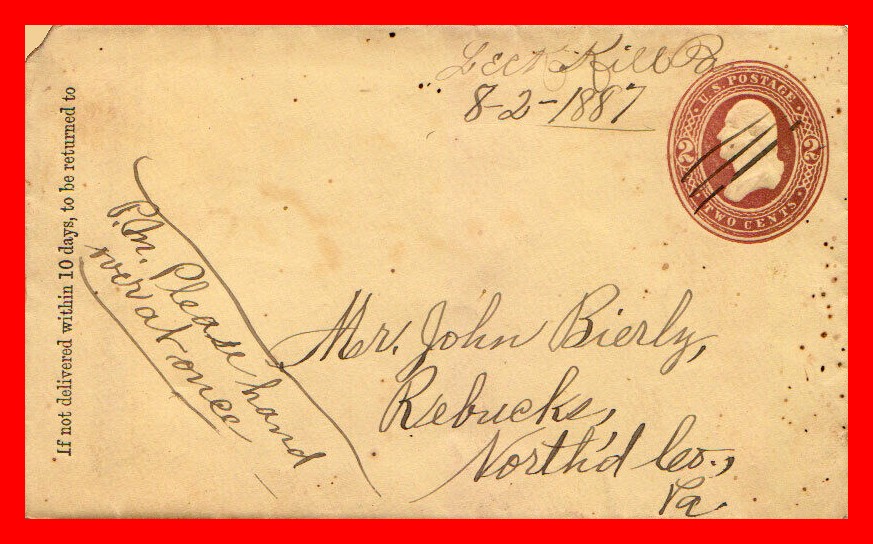 Leck Kill Pa
8-2-1887
U.S. POSTAGE
2 2
TWO CENTS
If not delivered within 10 days, to be returned to
P.M. Please hand
over at once
Mr. John Bierly,
Rebucks,
North'd Co.,
Pa